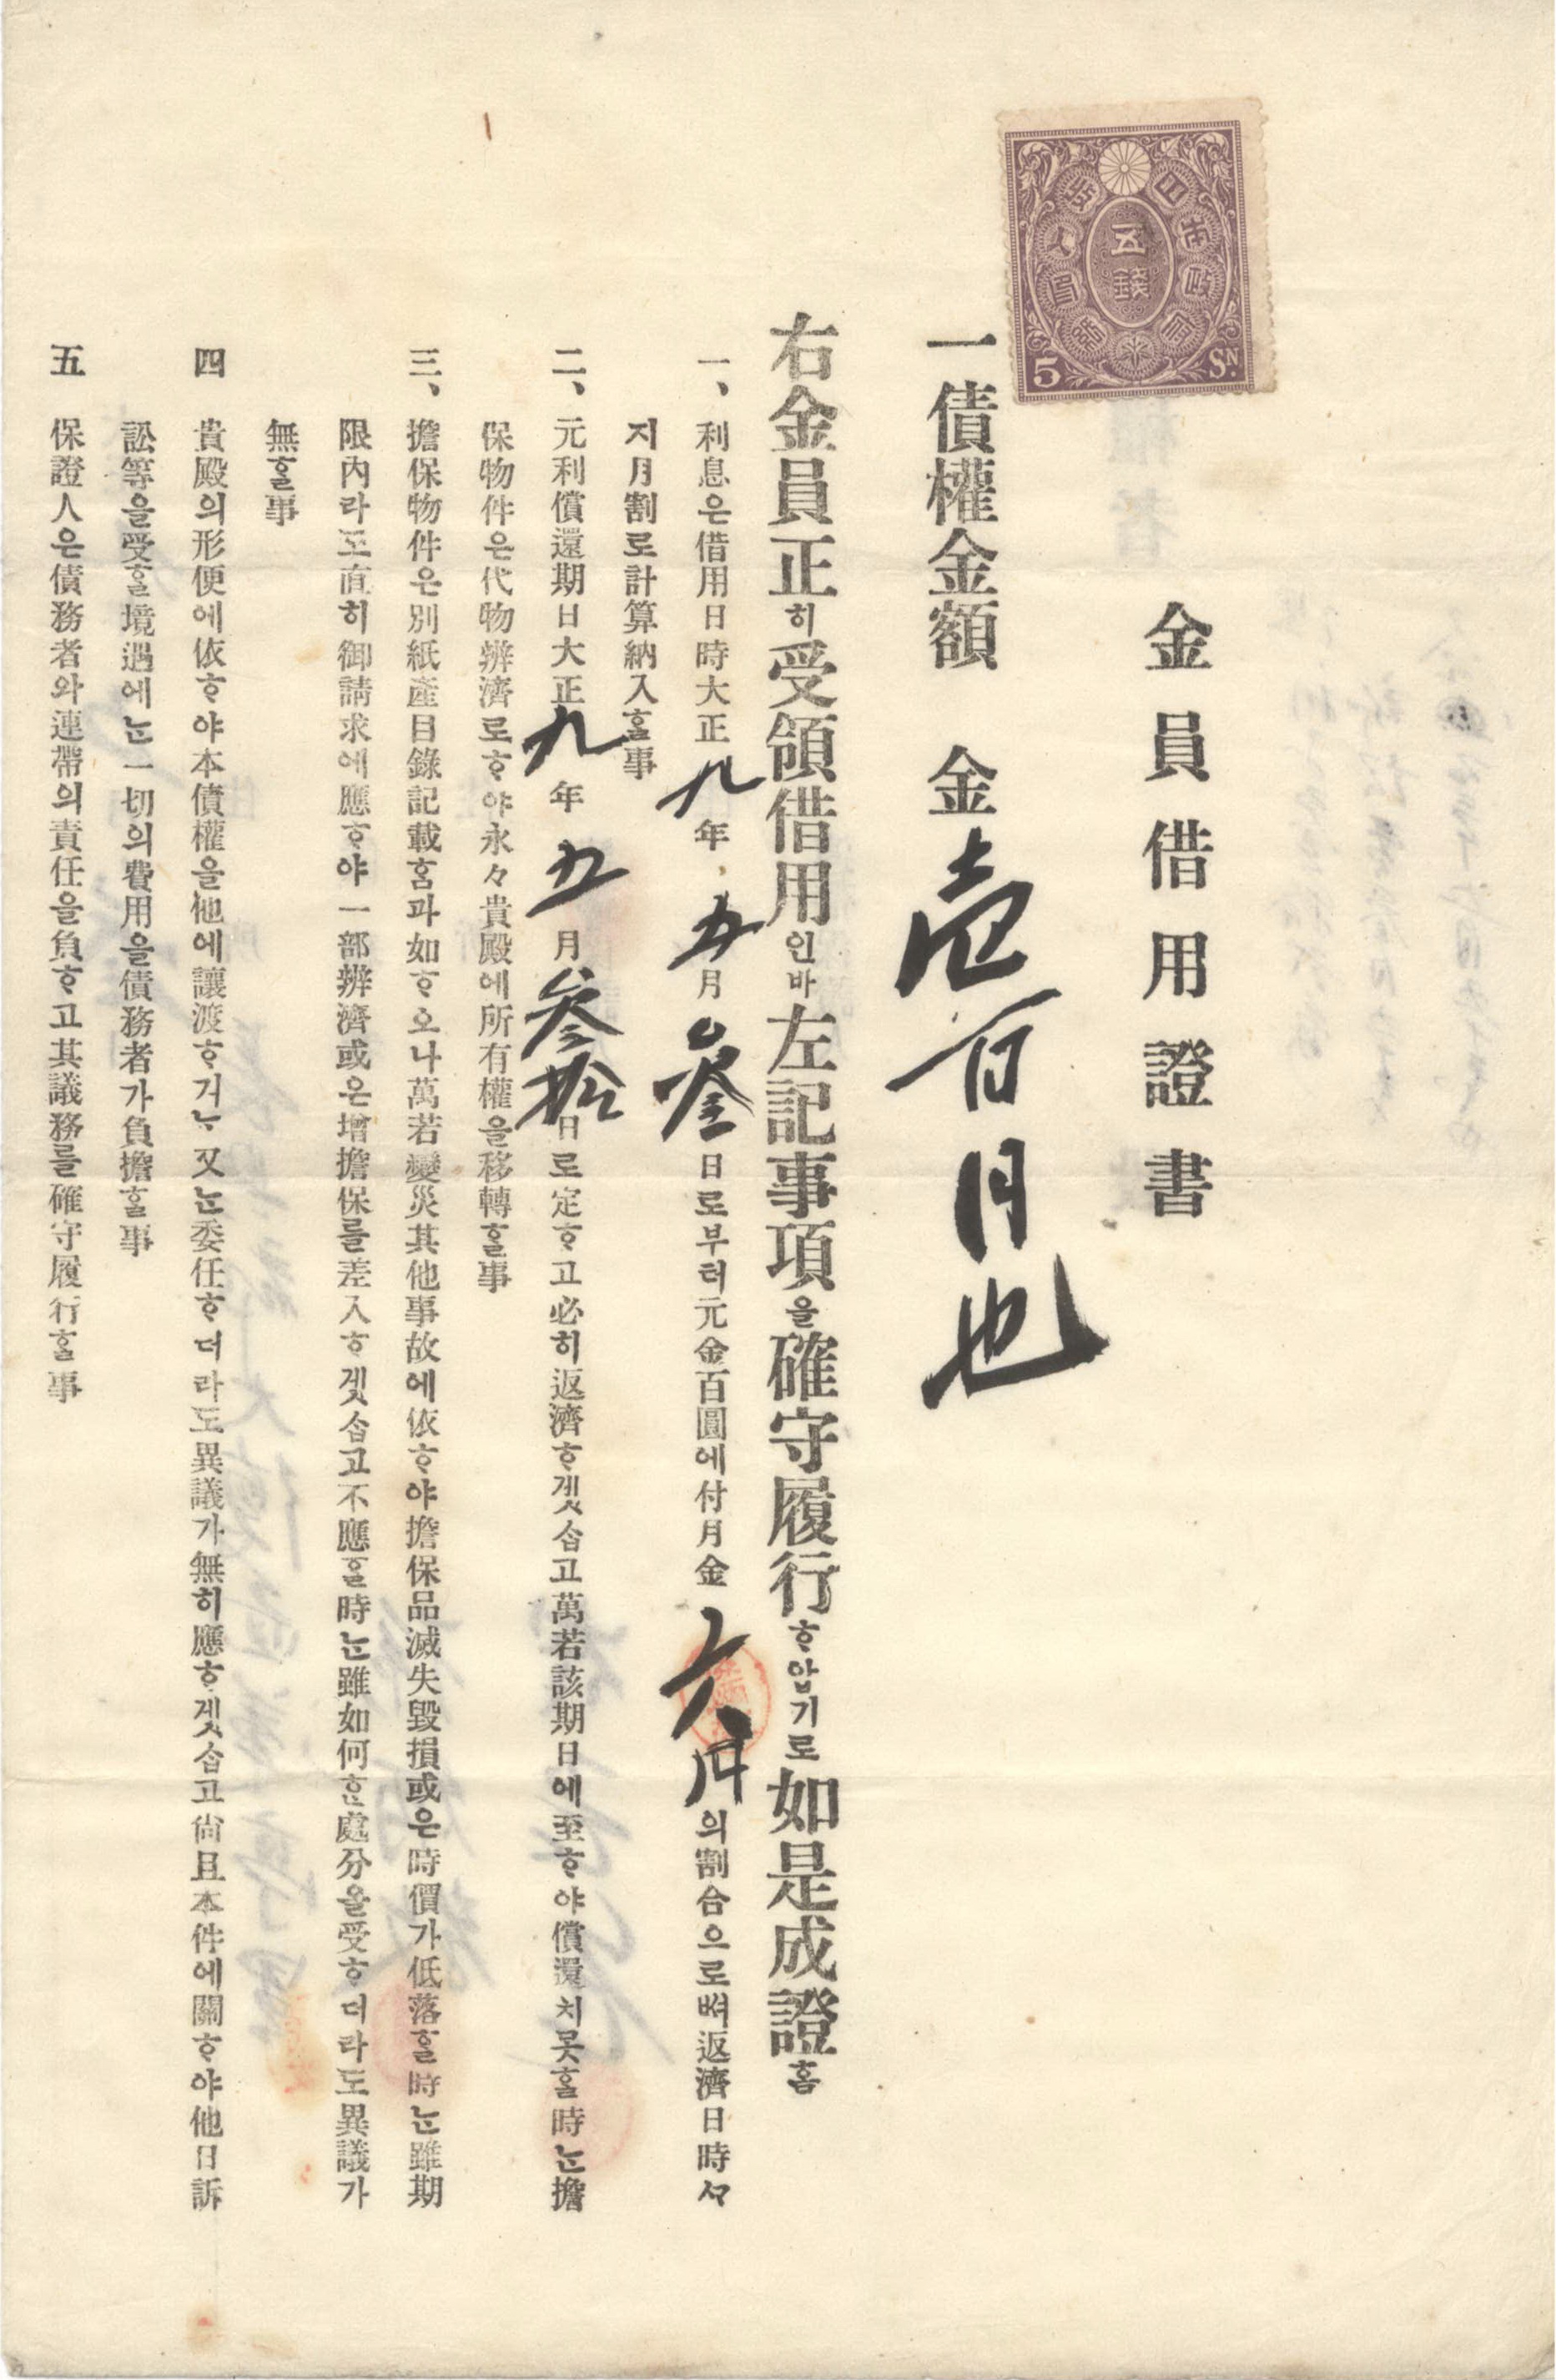 日本政府
收入印紙
五錢
5 SN.
金員借用證書
一債權金額 金壹百円也
右金員正히受領借用인바左記事項을確守履行ᄒᆞ압기로如是成證홈
一、利息은借用日時大正九年五月參日로부터元金百圓에付月金六円의割合으로ᄡᅥ返濟日時ᄭᅡ
지月割로計算納入ᄒᆞᆯ事
二、元利償還期日大正九年五月參拾日로定ᄒᆞ고必히返濟ᄒᆞ겟ᄉᆞᆸ고萬若該期日에至ᄒᆞ야償還치못ᄒᆞᆯ時ᄂᆞᆫ擔
保物件은代物辨濟로ᄒᆞ야永々貴殿에所有權을移轉ᄒᆞᆯ事
三、擔保物件은別紙產目錄記載홈과如ᄒᆞ오나萬若變災其他事故에依ᄒᆞ야擔保品滅失毀損或은時價가低落ᄒᆞᆯ時ᄂᆞᆫ雖期
限內라도直히御請求에應ᄒᆞ야一部辨濟或은增擔保를差入ᄒᆞ겟ᄉᆞᆸ고不應ᄒᆞᆯ時ᄂᆞᆫ雖如何ᄒᆞᆫ處分을受ᄒᆞ더라도異議가
無ᄒᆞᆯ事
四 貴殿의形便에依ᄒᆞ야本債權을他에讓渡ᄒᆞ거ᄂᆞ又ᄂᆞᆫ委任ᄒᆞ더라도異議가無히應ᄒᆞ겟ᄉᆞᆸ고尙且本件에關ᄒᆞ야他日訴
訟等을受ᄒᆞᆯ境遇에ᄂᆞᆫ一切의費用을債務者가負擔ᄒᆞᆯ事
五 保證人은債務者와連帶의責任을負ᄒᆞ고其議務를確守履行ᄒᆞᆯ事